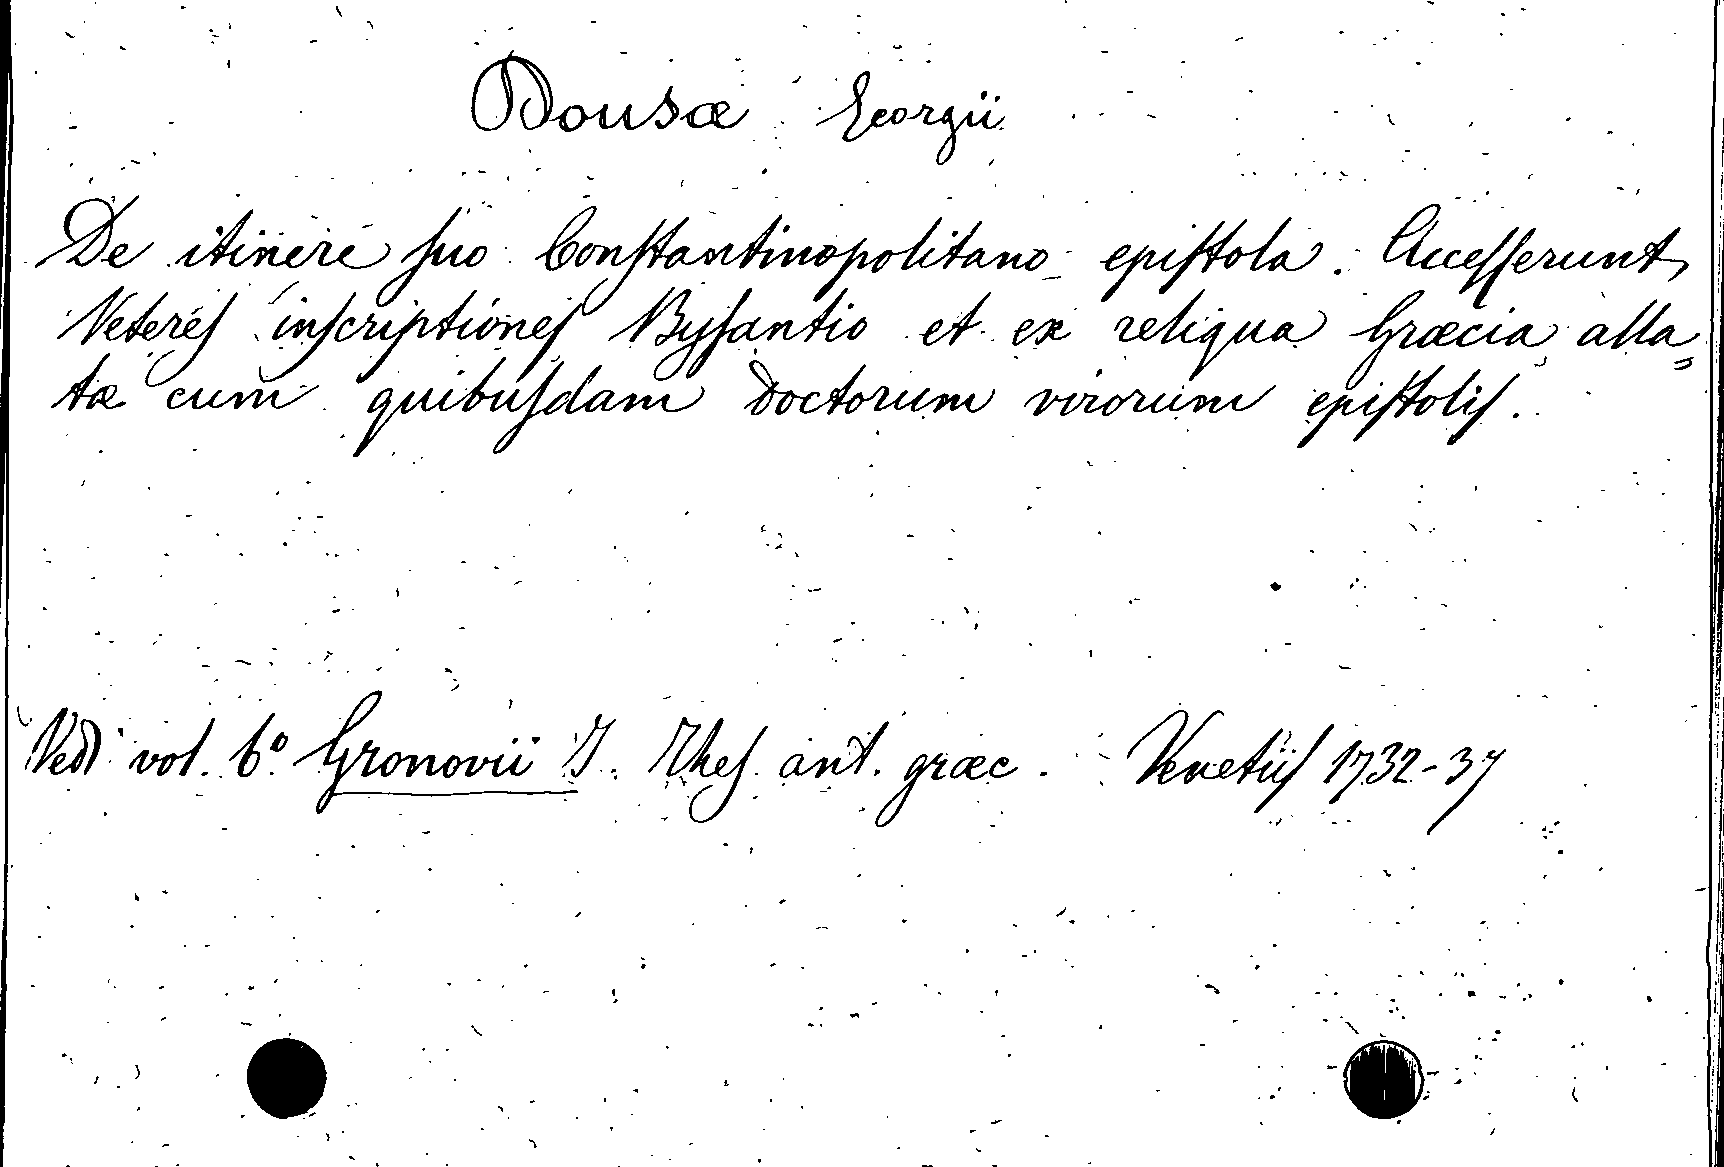 Dousæ Georgii
De itinere suo Constantinopolitano epistola. Accesserunt
Veteres inscriptiones Bysantio et ex reliqua Græcia alla=
tæ cum quibusdam doctorum virorum epistolis.
Vedi vol. 6º Gronovii J. Thes. ant. græc. Venetiis 1732-37